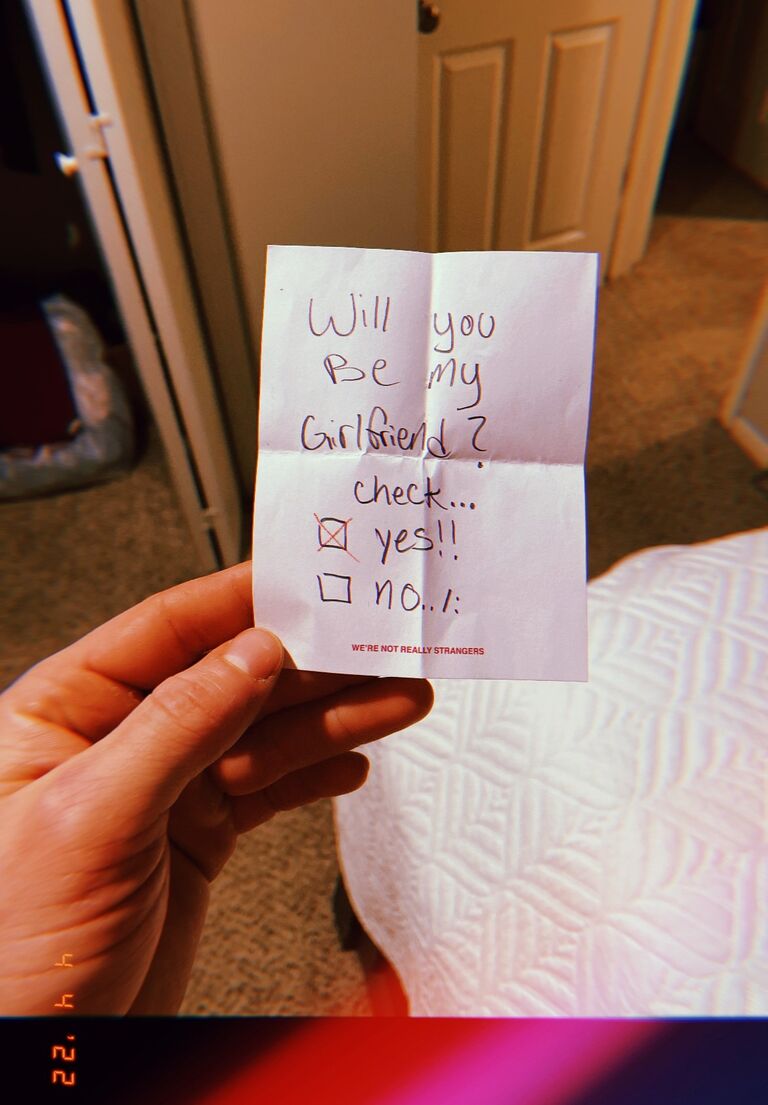 Will you
Be my
Girlfriend?
check...
yes!!
no../:
WE'RE NOT REALLY STRANGERS
4 4 '22